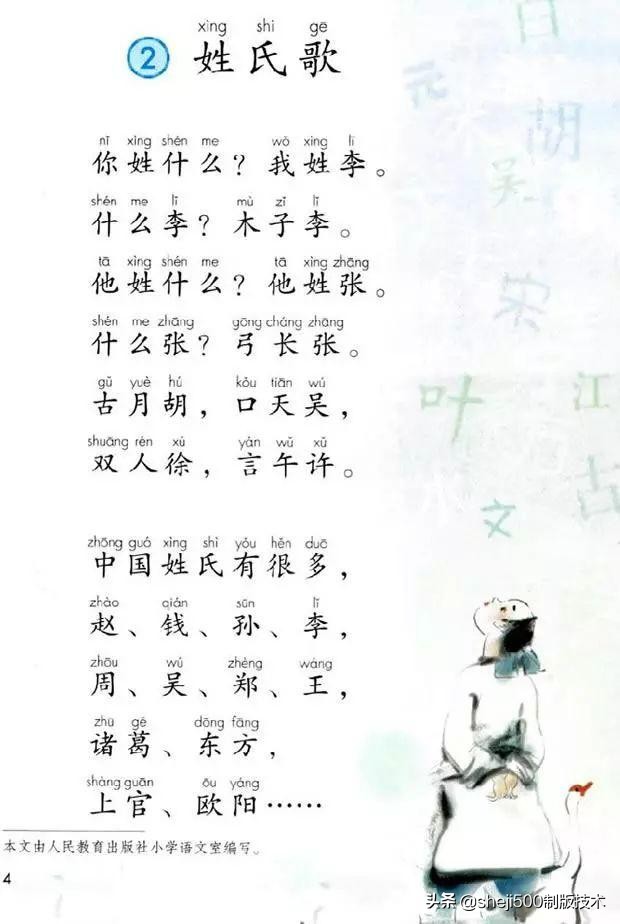 xìng shì gē
2 姓氏歌
nǐ xìng shén me wǒ xìng lǐ
你姓什么？我姓李。
shén me lǐ mù zǐ lǐ
什么李？木子李。
tā xìng shén me tā xìng zhāng
他姓什么？他姓张。
shén me zhāng gōng cháng zhāng
什么张？弓长张。
gǔ yuè hú kǒu tiān wú
古月胡，口天吴，
shuāng rén xú yán wǔ xǔ
双人徐，言午许。
zhōng guó xìng shì yǒu hěn duō
中国姓氏有很多，
zhào qián sūn lǐ
赵、钱、孙、李，
zhōu wú zhèng wáng
周、吴、郑、王，
zhū gě dōng fāng
诸葛、东方，
shàng guān ōu yáng
上官、欧阳……
本文由人民教育出版社小学语文室编写。
4
元
胡
吴
宋
叶
江
古
文
头条 @sheji500制版技术